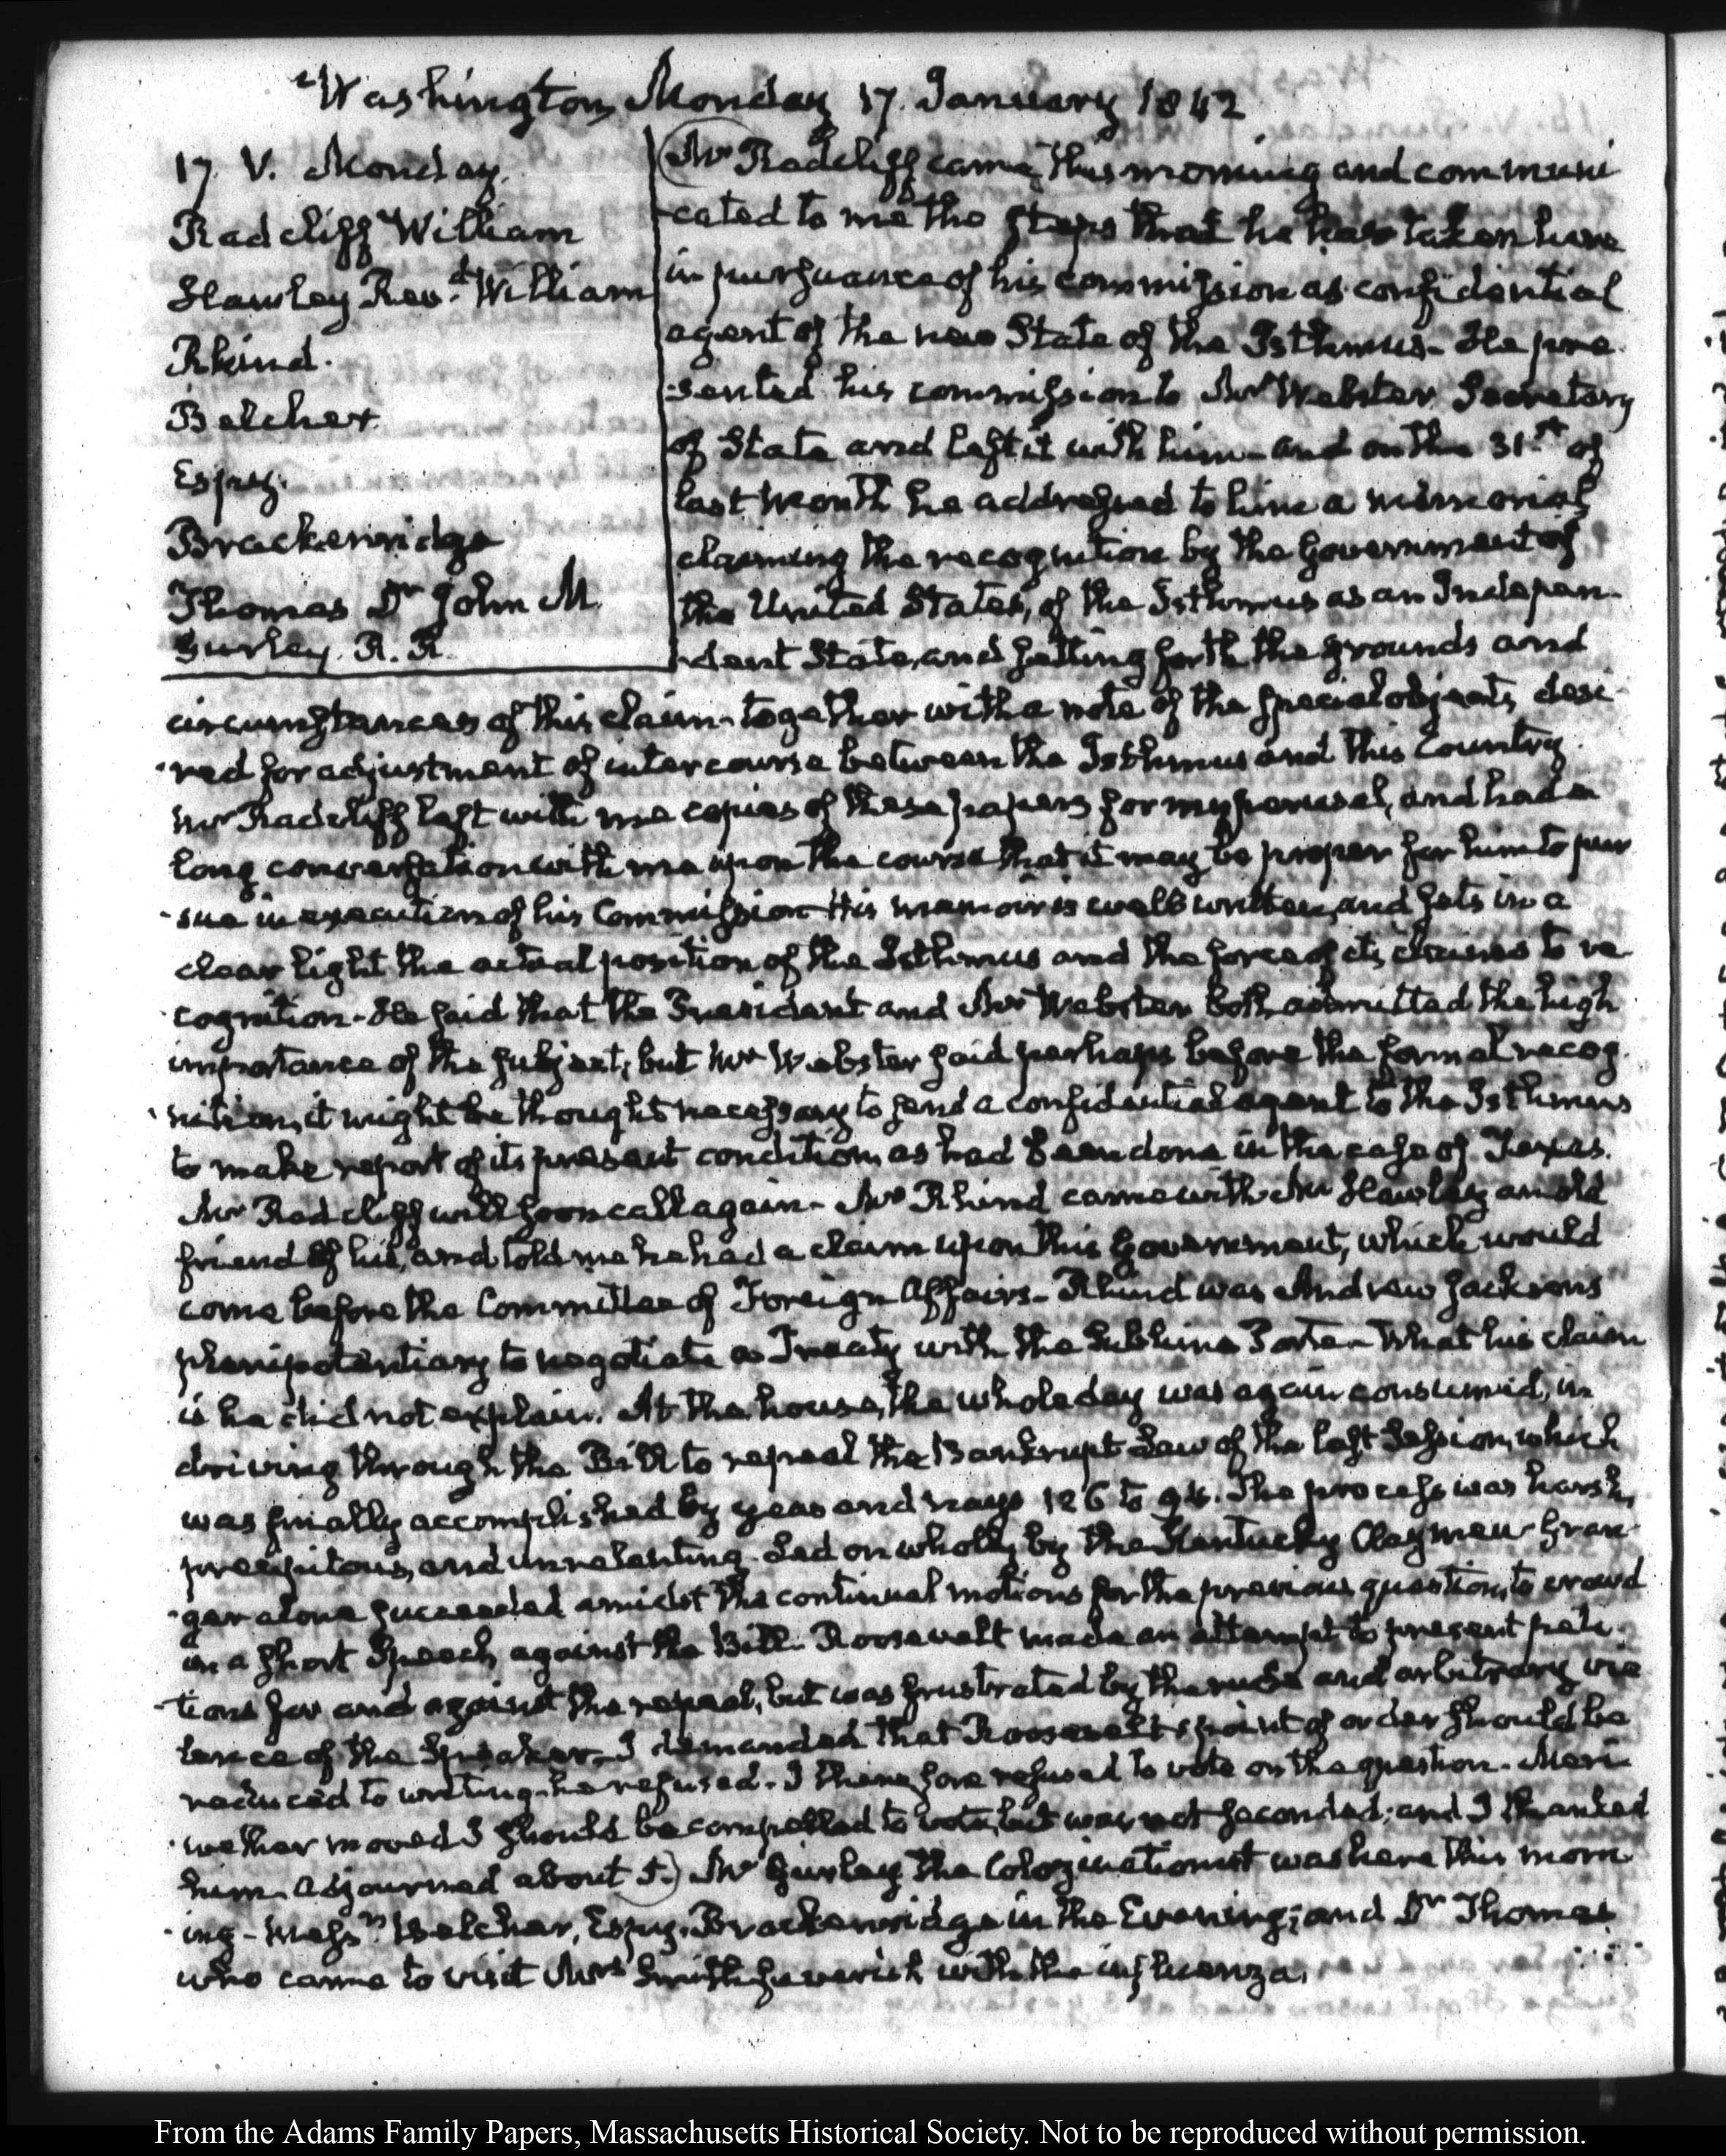 Washington Monday 17. January 1842
17. V. Monday.
Radcliff William
Hawley Revd. William
Rhind.
Belcher.
Espy.
Brackenridge
Thomas Dr John M.
Gurley. R. R.
Mr Radcliff came this morning and communi
cated to me the steps that he has taken here
in pursuance of his commission as confidential
agent of the new State of the Isthmus- He pre
-sented his commission to Mr Webster Secretary
of State and left it with him- and on the 31st. of
last Month he addressed to him a memorial
claiming the recognition by the Government of
the United States, of the Isthmus as an Indepen-
-dent State, and setting forth the grounds and
circumstances of this claim- together with a note of the special objects desi-
-red for adjustment of intercourse between the Isthmus and this Country.
Mr Radcliff left with me copies of these papers for my perusal, and had a
long conversation with me upon the course that it may be proper for him to pur
-sue in execution of his Commission- His memoir is well written, and sets in a
clear light the actual position of the Isthmus and the force of its claims to re-
-cognition- He said that the President and Mr Webster both admitted the high
importance of the subject; but Mr Webster said perhaps before the formal recog
-nition, it might be thought necessary to send a confidential agent to the Isthmus
to make report of its present condition, as had been done in the case of Texas.
Mr Radcliff will soon call again- Mr Rhind came with Mr Hawley an old
friend of his, and told me he had a claim upon this Government, which would
come before the Committee of Foreign Affairs- Rhind was Andrew Jackson's
plenipotentiary to negotiate a Treaty with the Sublime Porte- What his claim
is he did not explain. At the house, the whole day was again consumed, in
driving through the Bill to repeal the Bankrupt Law of the last Session, which
was finally accomplished by yeas and nays 126 to 94. The process was harsh,
precipitous, and unrelenting- Led on wholly by the Kentucky Clay men- Gran-
-ger alone succeeded amidst the continual motions for the previous question, to crowd
in a short Speech against the Bill. Roosevelt made an attempt to present peti-
-tions for and against the repeal, but was frustrated by the rude and arbitrary vio
lence of the Speaker- I demanded that Roosevelt's point of order should be
reduced to writing- he refused- I therefore refused to vote on the question- Meri
-wether moved I should be compelled to vote, but was not seconded; and I thanked
him- adjourned about 5.) Mr Gurley the Colonizationist was here this morn
-ing- Messrs. Belcher, Espy, Brackenridge in the Evening; and Dr Thomas
who came to visit Mrs Smith feverish with the influenza.
From the Adams Family Papers, Massachusetts Historical Society. Not to be reproduced without permission.